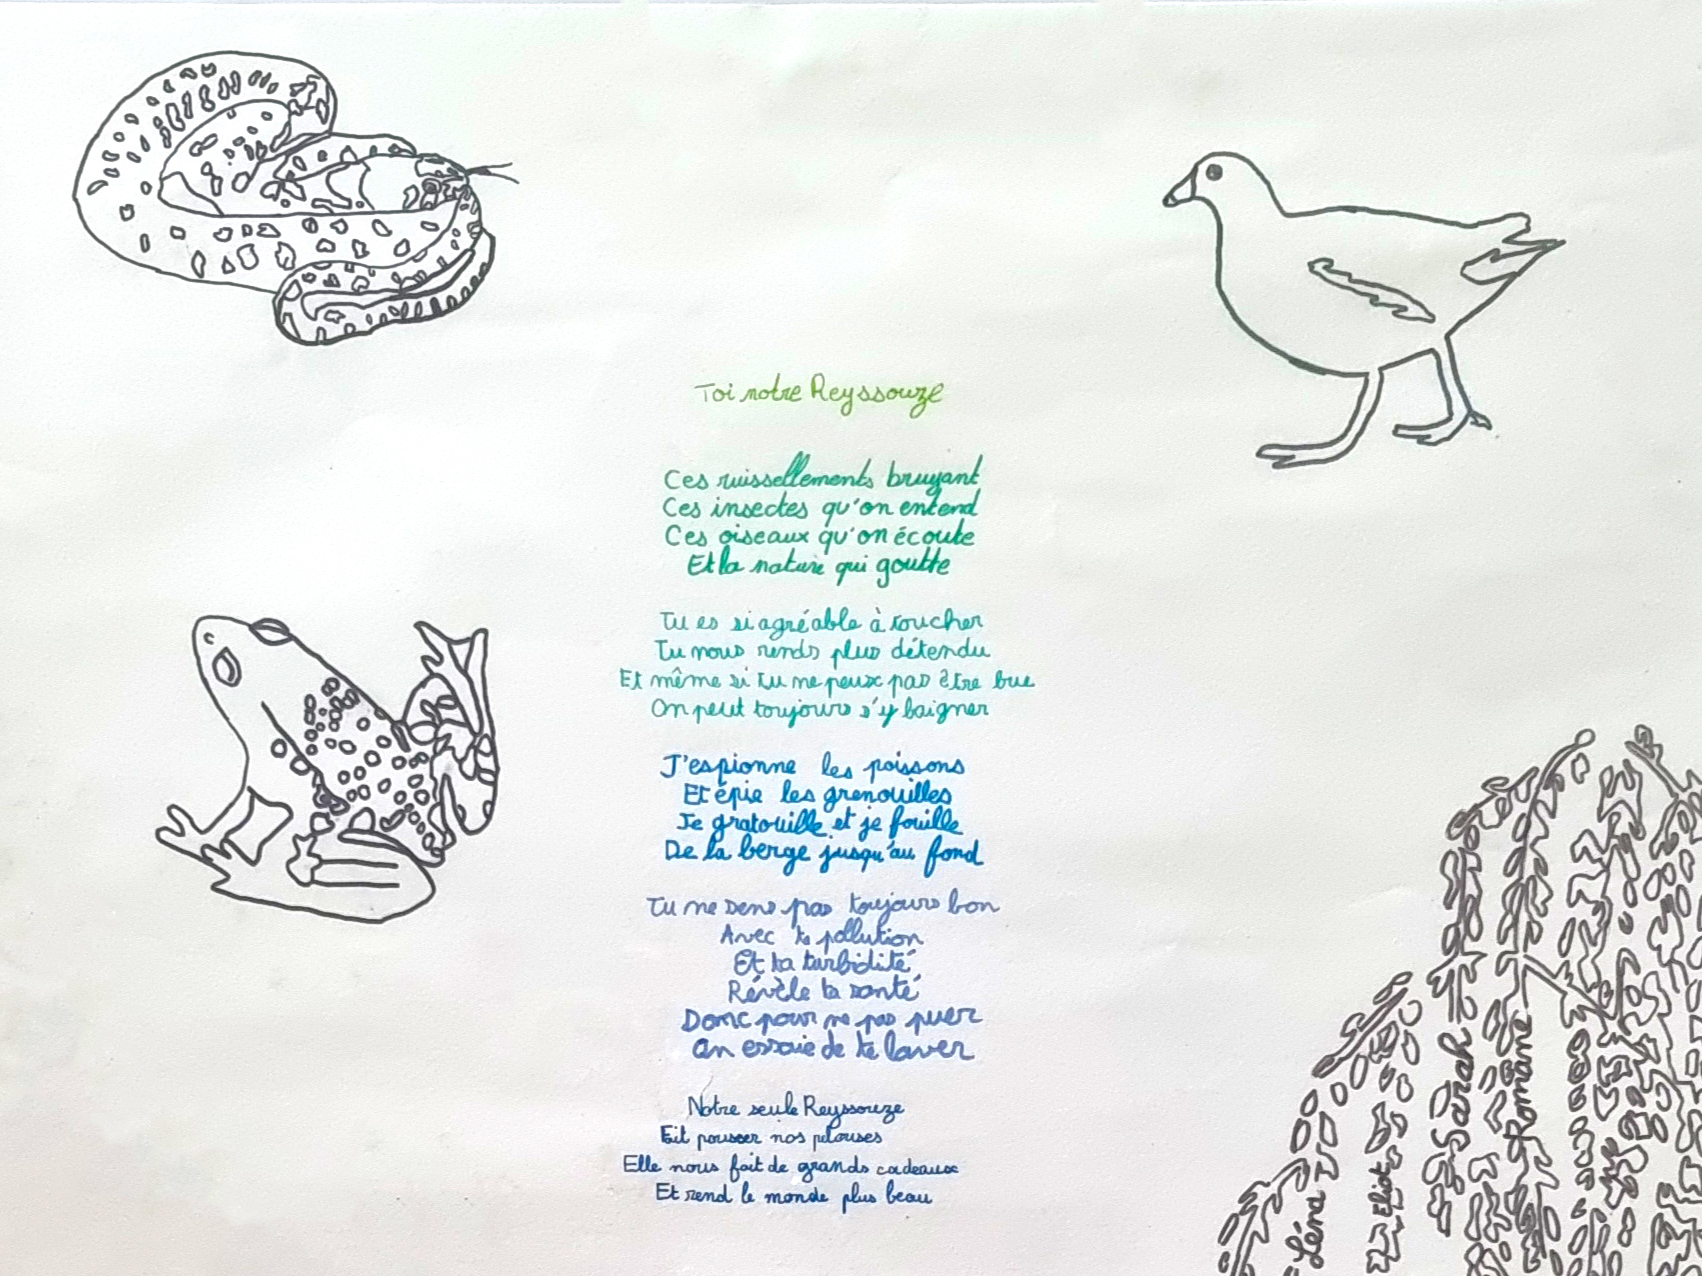 Toi notre Reyssouze
Ces ruissellements bruyant
Ces insectes qu'on entend
Ces oiseaux qu'on écoute
Et la nature qui goutte
Tu es si agréable à toucher
Tu nous rends plus détendu
Et même si tu ne peux pas être bue
On peut toujours s'y baigner
J'espionne les poissons
Et épie les grenouilles
Je gratouille et je fouille
De la berge jusqu'au fond
Tu ne sens pas toujours bon
Avec ta pollution
Et ta turbidité
Révèle ta santé
Donc pour ne pas puer
On essaie de te laver
Notre seule Reyssouze
Fait pousser nos pelouses
Elle nous fait de grands cadeaux
Et rend le monde plus beau
Léna
Eliot
Sarah
Romane